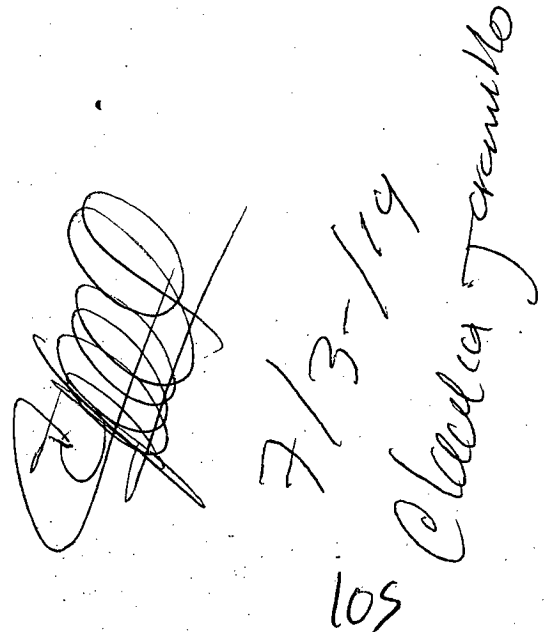 7/3-/19
Claudia Jaramillo
105